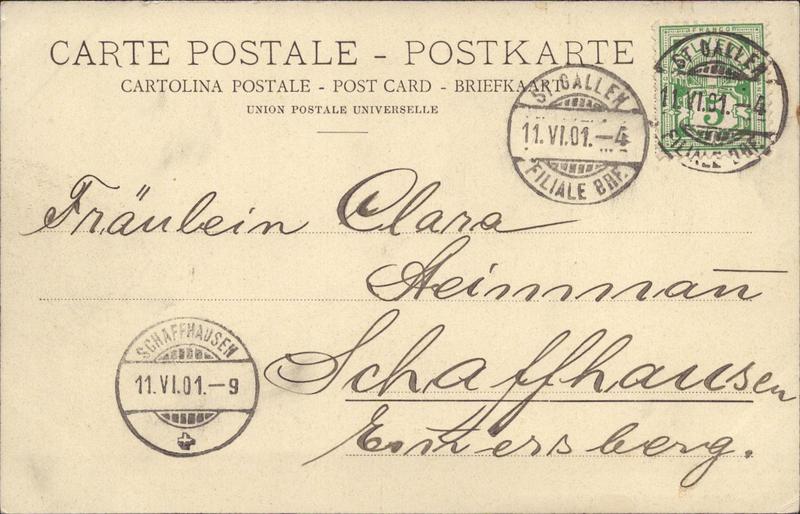 CARTE POSTALE - POSTKARTE
CARTOLINA POSTALE - POST CARD - BRIEFKAART
UNION POSTALE UNIVERSELLE
FRANCO
5
ST. GALLEN
11.VI.01.-4
FILIALE BRF.
ST. GALLEN
11.VI.01.-4
FILIALE BRF.
Fräulein Clara
Steinman̄
SCHAFFHAUSEN
11.VI.01.-9
Schaffhausen
Emmersberg.